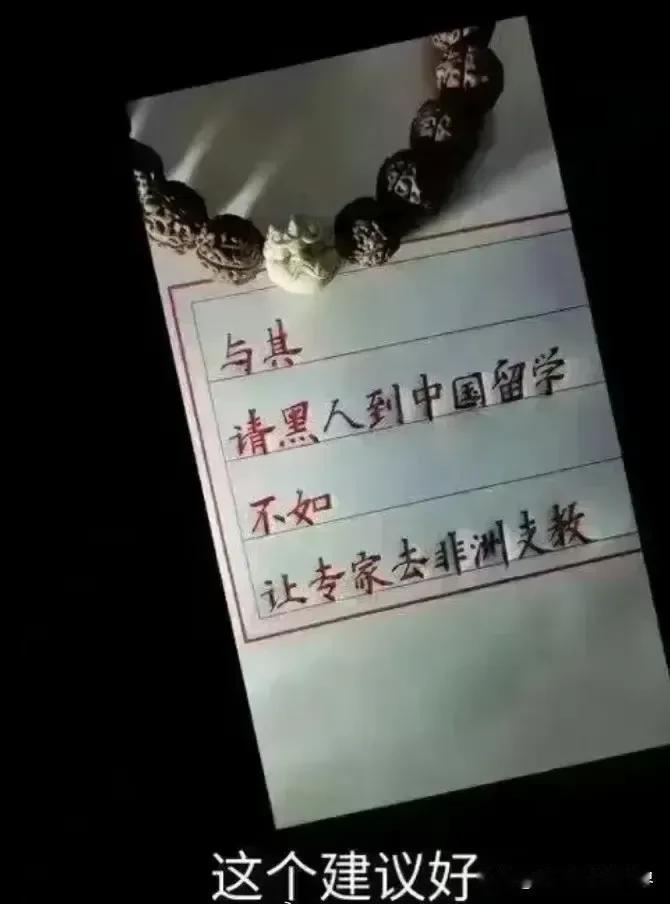 与其
请黑人到中国留学
不如
让专家去非洲支教
这个建议好